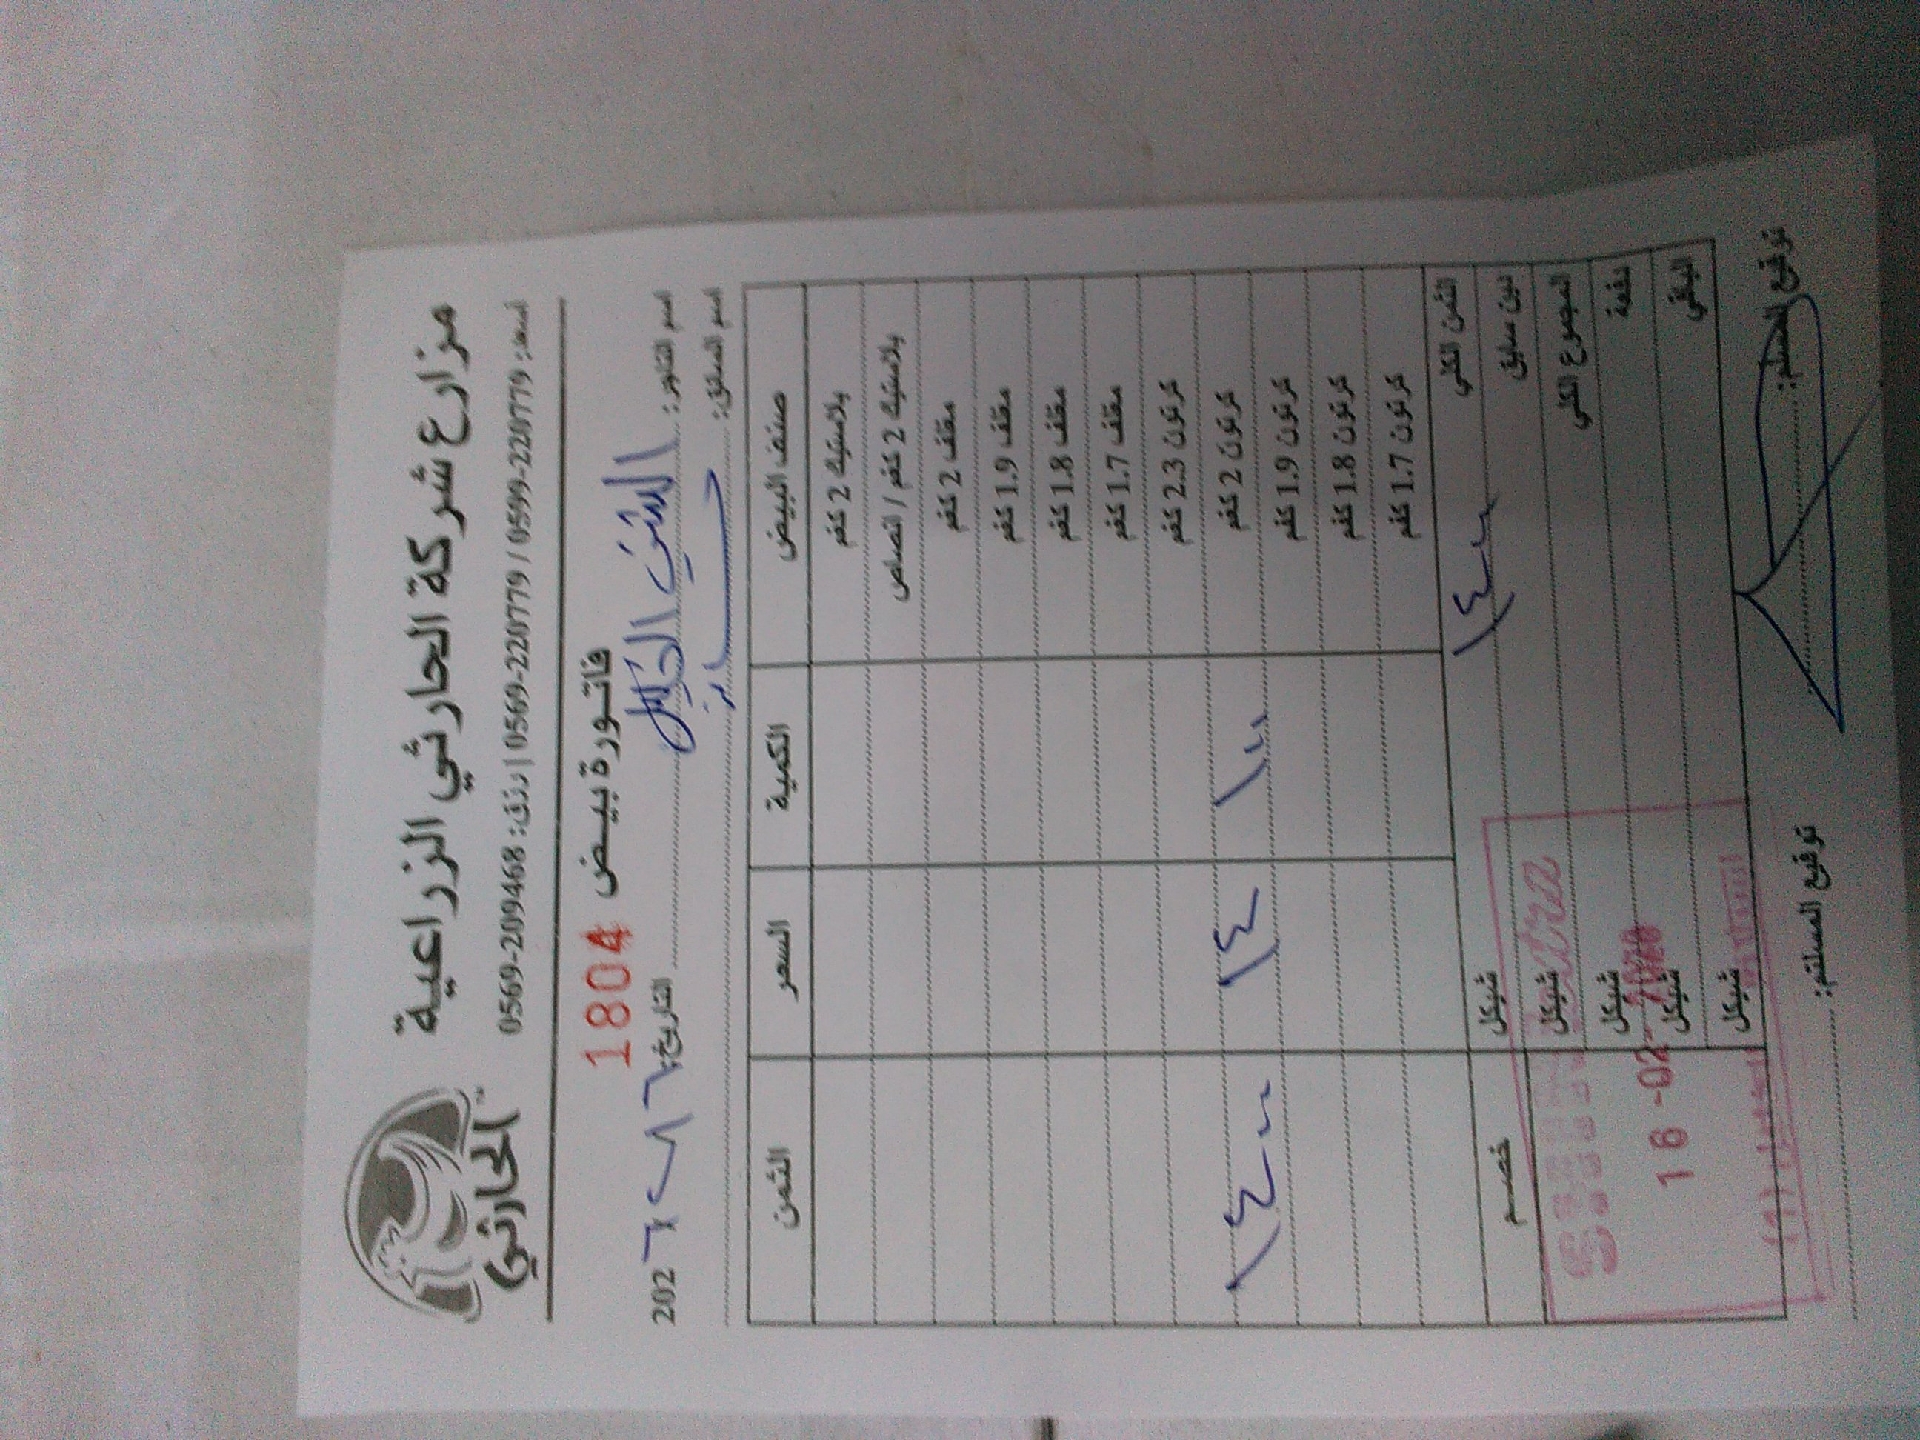 مزارع شركة الحارثي الزراعية
الحارثي
أسعد: 0599-220779 / 0569-220779 | رزق: 0569-209468
فاتورة بيض 1804
اسم التاجر: التاريخ: 202٦
اسم السائق:
صنف البيض الكمية السعر الثمن
بلاستيك 2 كغم
بلاستيك 2 كغم / انصاص
مغلف 2 كغم
مغلف 1.9 كغم
مغلف 1.8 كغم
مغلف 1.7 كغم
كرتون 2.3 كغم
كرتون 2 كغم ١٠٠ ١٤ ١٤٠٠
كرتون 1.9 كغم
كرتون 1.8 كغم
كرتون 1.7 كغم
الثمن الكلي ١٤٠٠ شيكل خصم
دين سابق شيكل
المجموع الكلي شيكل
دفعة شيكل
الباقي شيكل
16 -02-
توقيع المسلم: توقيع المستلم: